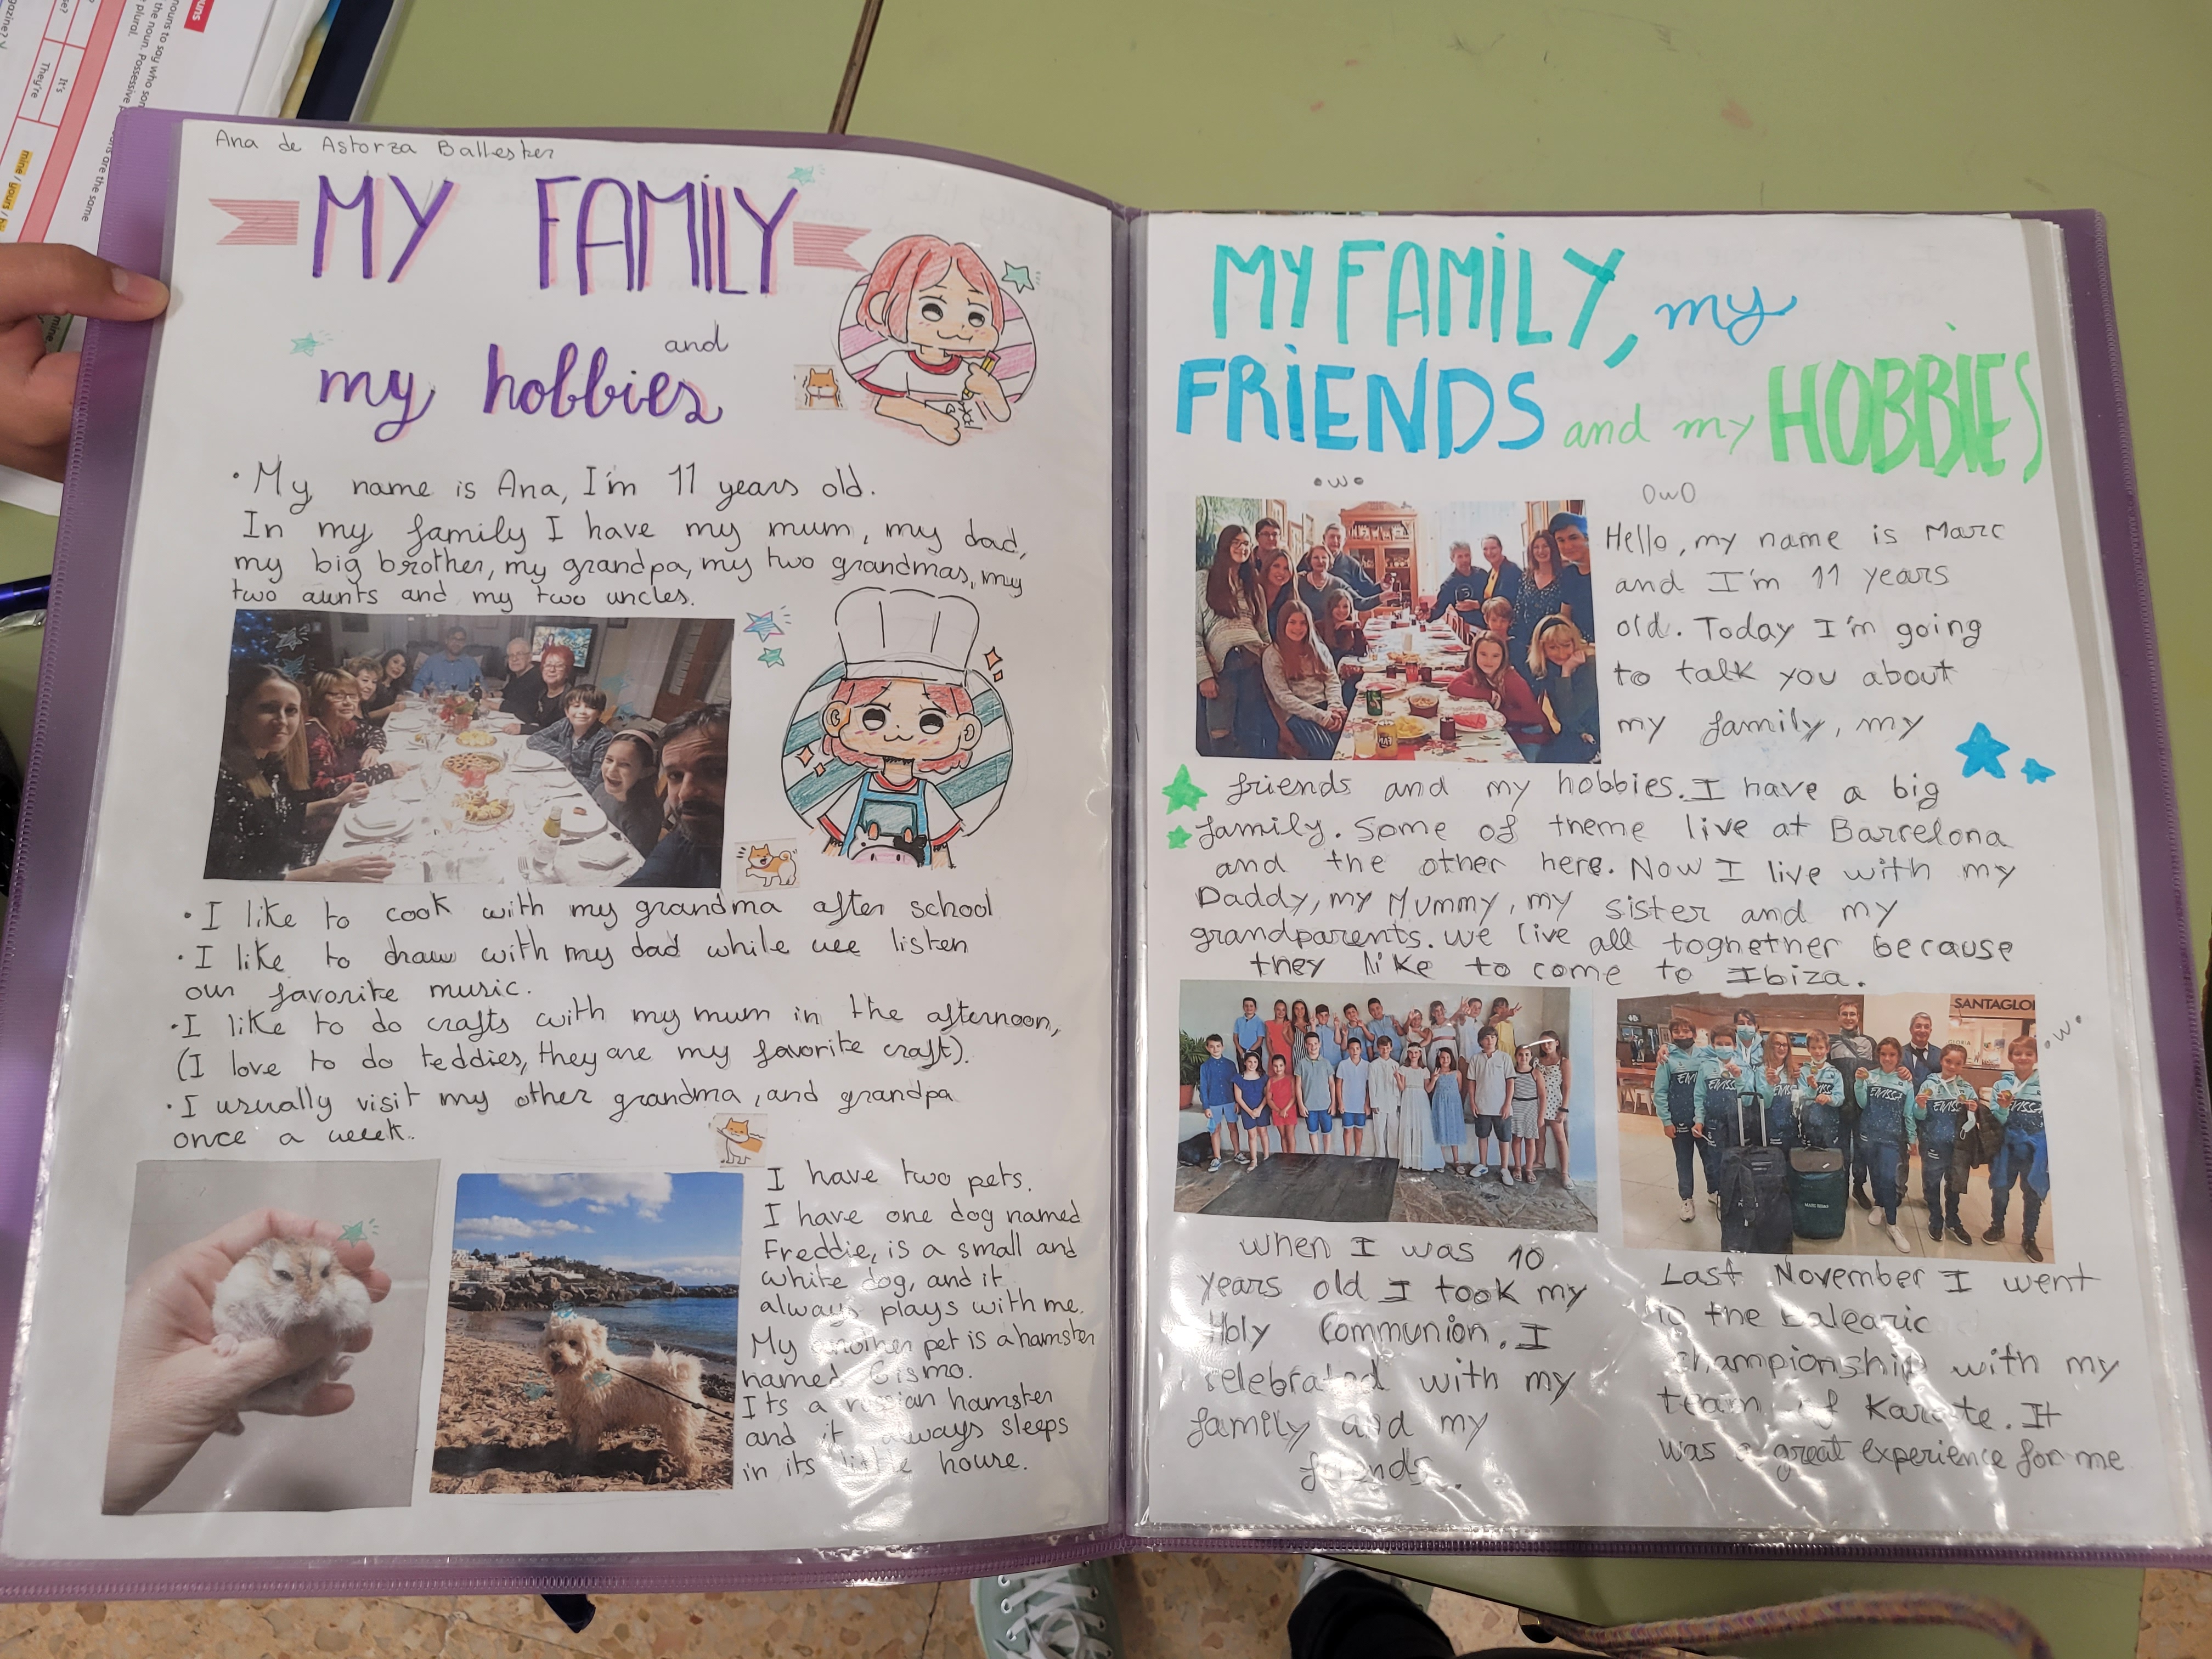 Ana de Astorza Ballester
MY FAMILY
and
my hobbies
• My name is Ana, I'm 11 years old.
In my family I have my mum, my dad,
my big brother, my grandpa, my two grandmas, my
two aunts and my two uncles.
• I like to cook with my grandma after school
• I like to draw with my dad while wee listen
our favorite music.
• I like to do crafts with my mum in the afternoon,
(I love to do teddies, they are my favorite craft).
• I usually visit my other grandma, and grandpa
once a week.
I have two pets.
I have one dog named
Freddie, is a small and
white dog, and it
always plays with me.
My another pet is a hamster
named Gismo.
Its a russian hamster
and it always sleeps
in its little house.
MY FAMILY, my
FRIENDS and my HOBBIES
•w•
OwO
Hello, my name is Marc
and I'm 11 years
old. Today I'm going
to talk you about
my family, my
friends and my hobbies. I have a big
family. Some of theme live at Barcelona
and the other here. Now I live with my
Daddy, my Mummy, my sister and my
grandparents. We live all toghether because
they like to come to Ibiza.
SANTAGLOR
GLORIA
•w•
When I was 10
years old I took my
Holy Communion. I
celebrated with my
family and my
friends.
Last November I went
to the Balearic
championship with my
team of Karate. It
was a great experience for me
nouns to say who
the noun. Possessive
plural.
It's
They're
mine / yours /
are the same